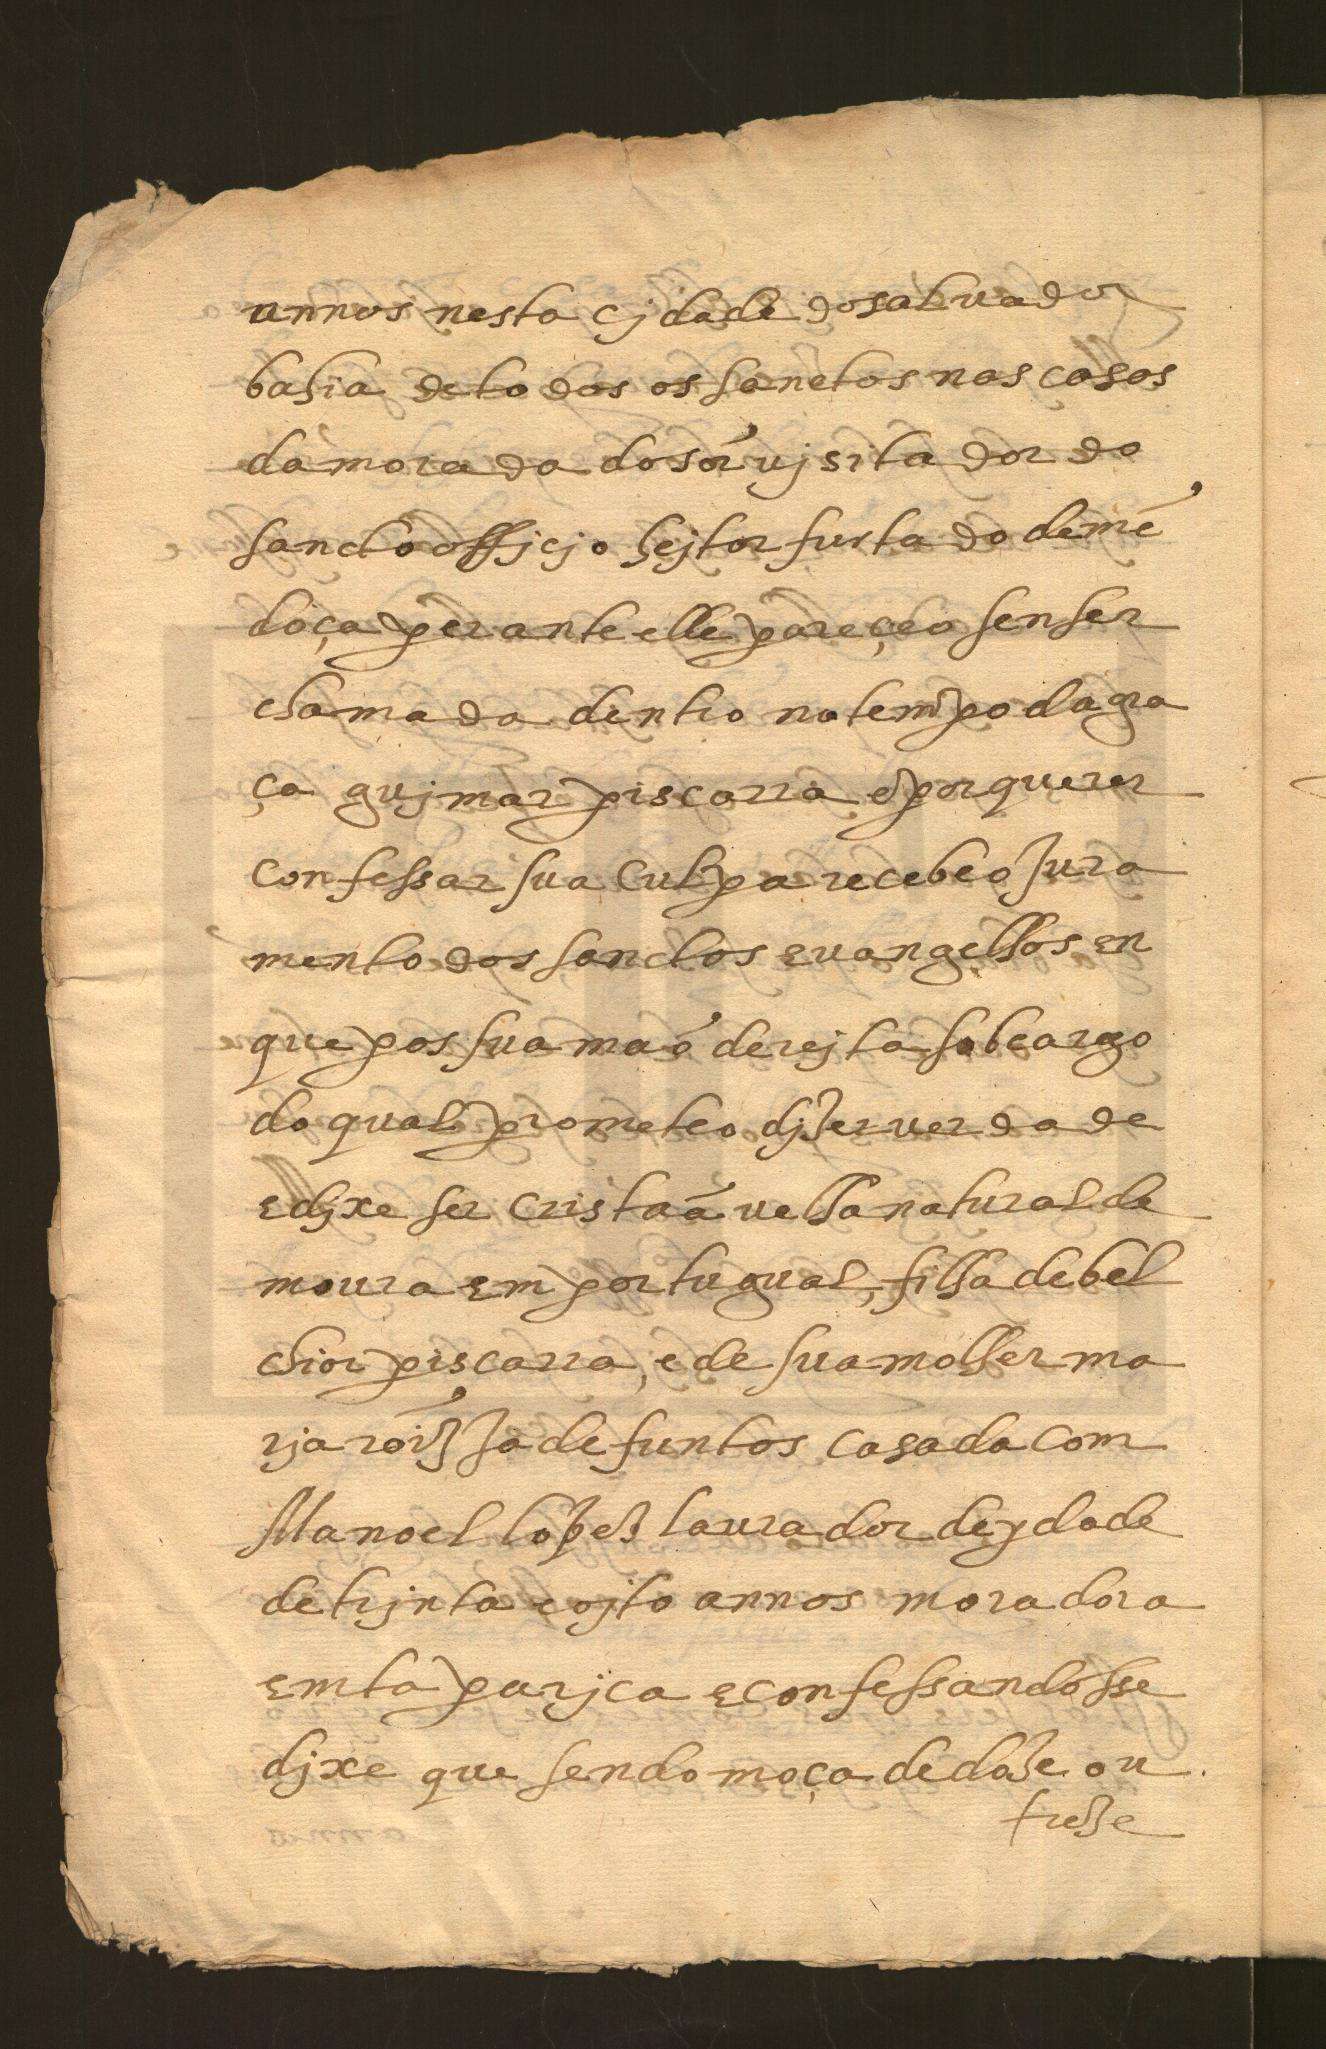 annos nesta cjdade do saluador
bahia de todos os sanctos nas casas
da morada do sõr vjsitador do
sancto officjo hejtor furtado de mẽ
doça perante elle pareçeo sen ser
chamada dentro no tempo da gra
ça gujmar piscarra e por querer
confessar sua culpa recebeo jura
mento dos sanctos euangelhos en
que pos sua maõ derejta sob cargo
do qual prometeo djzer verdade
e djxe ser cristaã velha natural de
moura em portugual, filha de bel
chior piscarra, e de sua molher ma
rja roĩz ja defuntos casada com
Manoel lopez laurador de ydade
de trjnta e ojto annos moradora
em taparjca e confessandosse
djxe que sendo moça de doze ou
treze